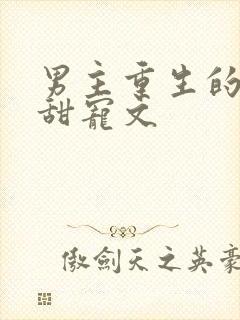 男主重生的
甜寵文
傲劍天之英豪